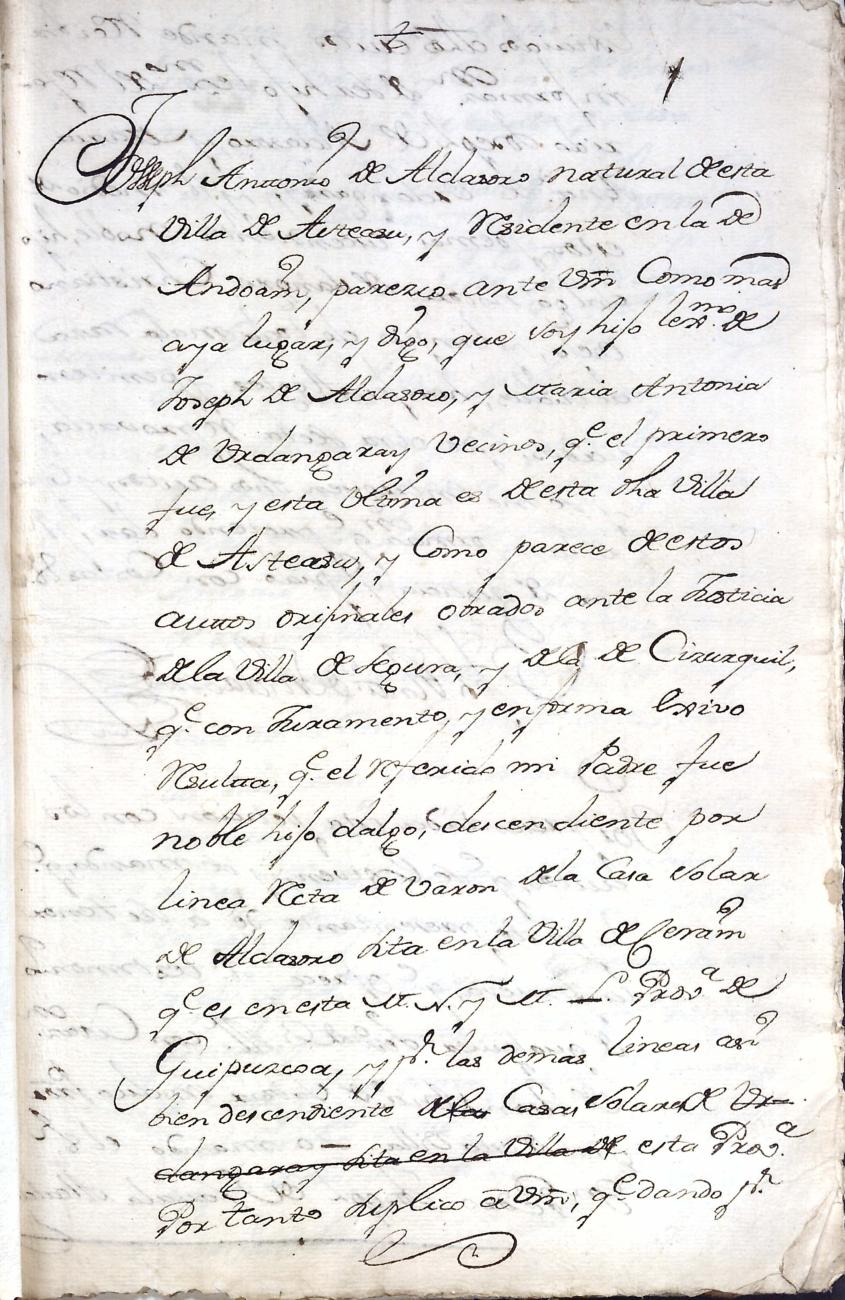 1
Joseph Antonio de Aldasoro natural de esta
Villa de Asteasu, y Residente en la de
Andoain, parezco ante Vm Como mas
aya lugar, y digo, que soy hijo lexmo. de
Joseph de Aldasoro, y Maria Antonia
de Urdangaray Vecinos, qe. el primero
fue, y esta Ultima es de esta dha Villa
de Asteasu, y Como parece de estos
auttos orijinales obrados ante la Justicia
de la Villa de Segura, y de la de Cizurquil,
qe. con Juramento, y en forma Exivo
Resultta, qe. el Referido mi Padre fue
noble hijo dalgo, descendiente por
linea Recta de varon de la Casa Solar
de Aldasoro sita en la Villa de Cerain
qe. es en esta M. N. y M. L. Prova de
Guipuzcoa, y pr. las demas lineas asi
bien descendiente de las Casas Solares de Ur-
dangaray sita en la Villa de esta Prova.
Por tanto suplico a Vm, qe. dando pr.